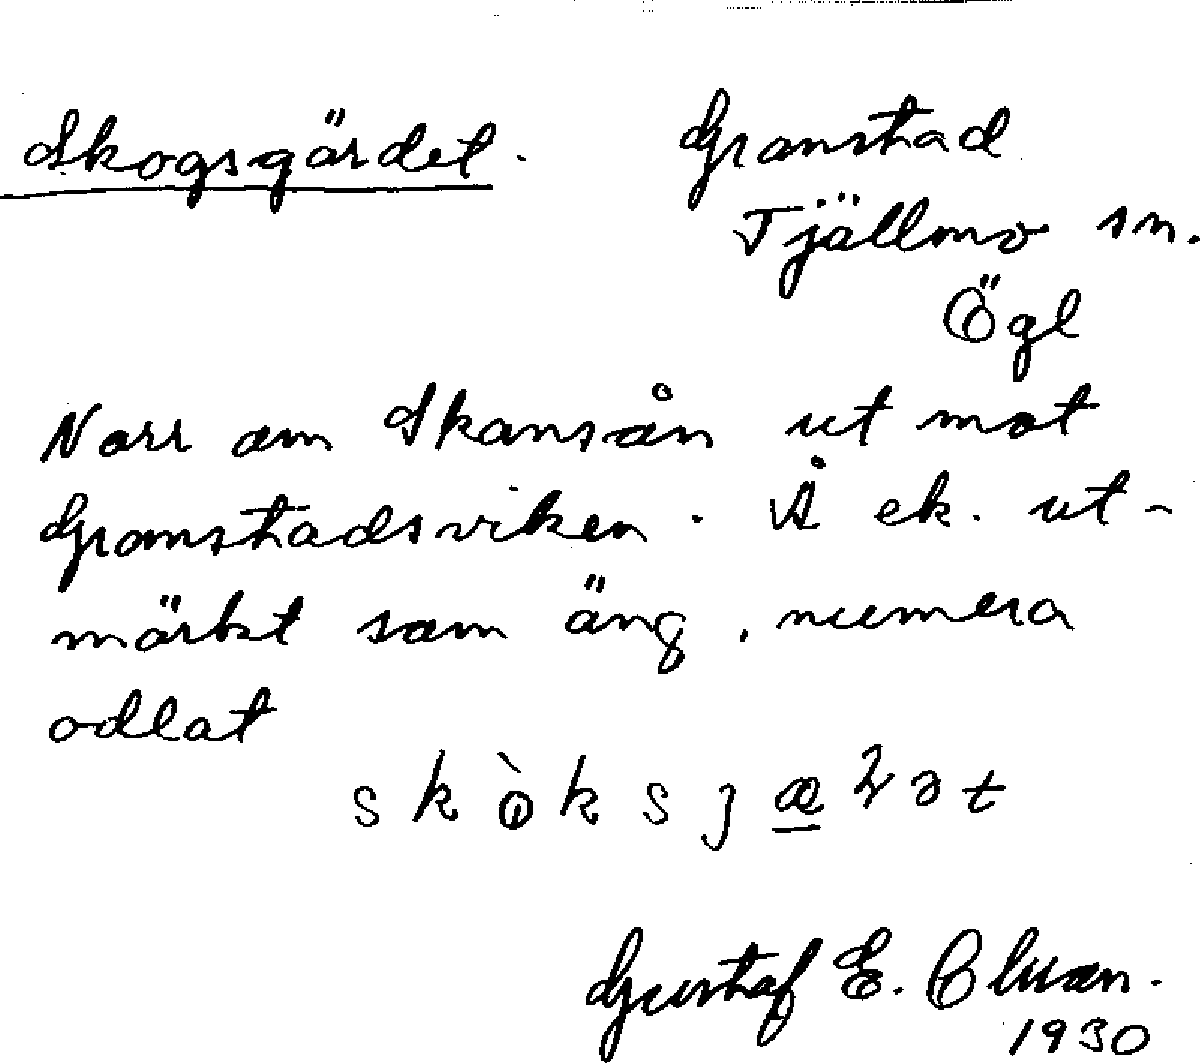 Skogsgärdet. Gramstad
Tjällmo sn.
Ögl
Norr om Skansån ut mot
Gramstadsviken. Å ek. ut-
märkt som äng, numera
odlat
Gustaf E.
1930